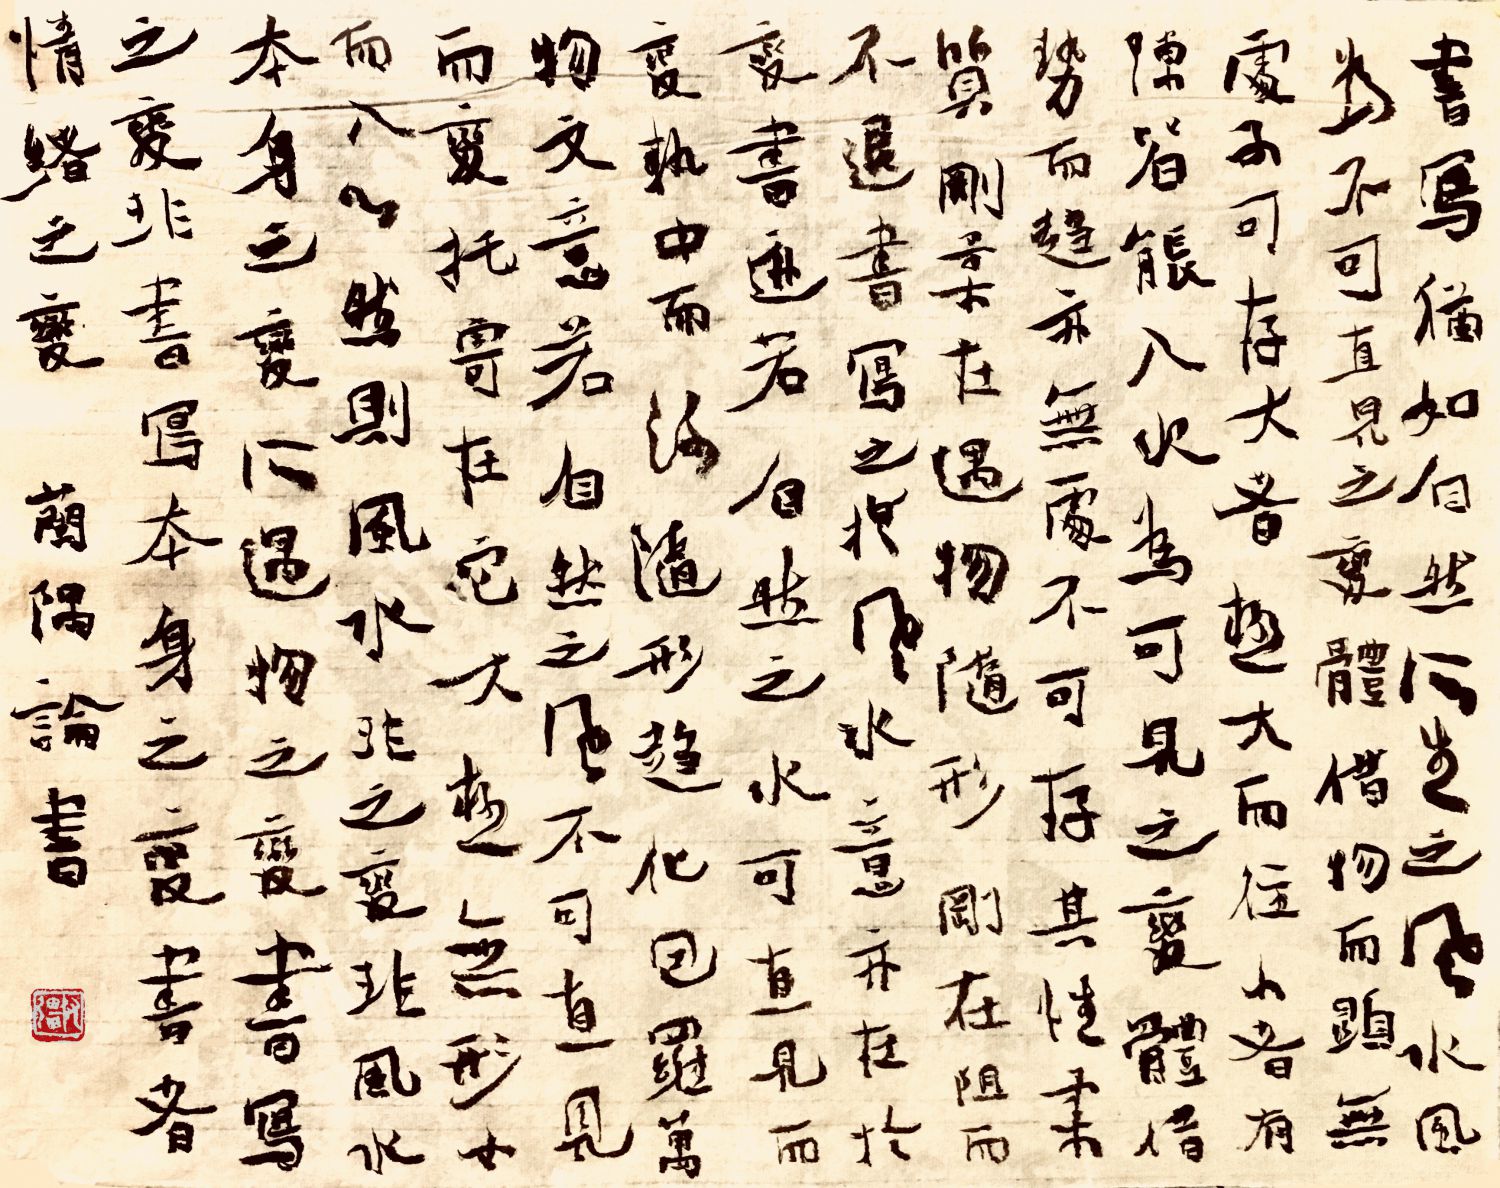 書寫猶如自然所生之風水風
為不可直見之變體借物而顯無
處不可存大者極大而往小者有
隙皆能入水為可見之變體借
勢而趨亦無處不可存其性柔
質剛柔在遇物隨形剛在阻而
不退書寫之於風水意亦在於
變書迹若自然之水可直見而
變執中而隨形趨化包羅萬
物文意若自然之風不可直見
而變托寄在它大極無形小
而入心然則風水非之變非風水
本身之變所遇物之變書寫
之變非書寫本身之變書者
情緒之變 蘭隅論書